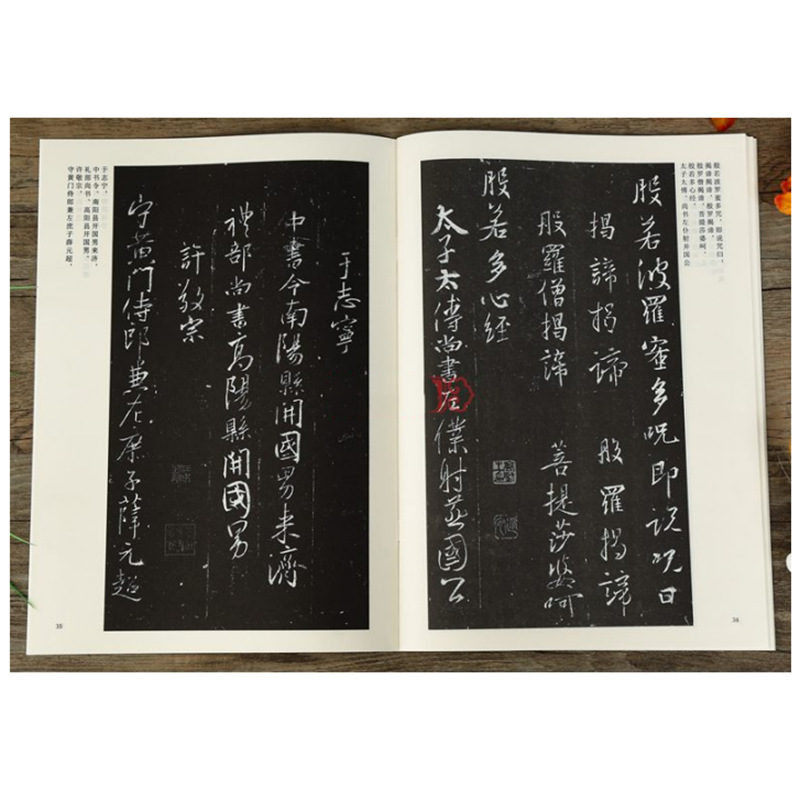 般若波罗蜜多咒，即说咒曰，
揭谛揭谛，般罗揭谛，
般罗僧揭谛，菩提莎婆呵，
般若多心经，
太子太傅，尚书左仆射并国公
般若波羅蜜多呪即說呪曰
揭諦揭諦 般羅揭諦
般羅僧揭諦 菩提莎婆呵
般若多心經
太子太傅尚書左僕射燕國公
34
于志寧
中書令南陽縣開國男来濟
禮部尚書高陽縣開國男
許敬宗
守黃門侍郎兼左庶子薛元超
于志宁，
中书令，南阳县开国男来济，
礼部尚书，高阳县开国男，
许敬宗，
守黄门侍郎兼左庶子薛元超，
35